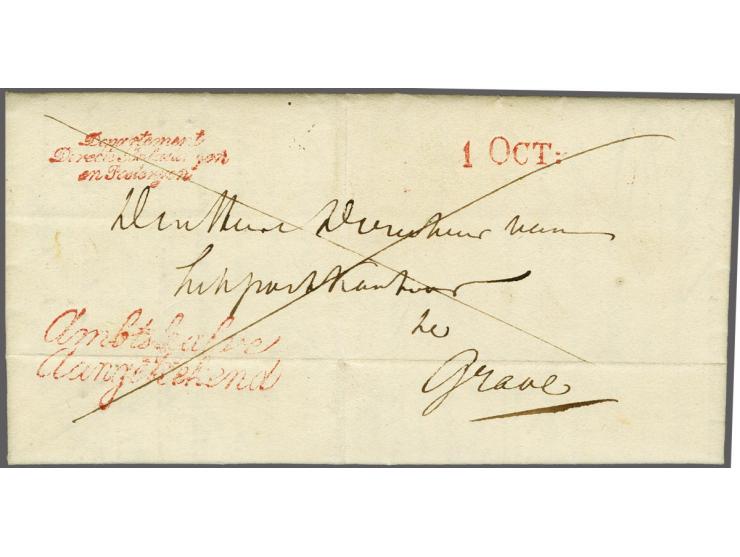 Departement
Directie
en Posterijen
1 OCT:
Den Heere Directeur van
het postkantoor
te
Grave
Ambtshalve
Aangetekend